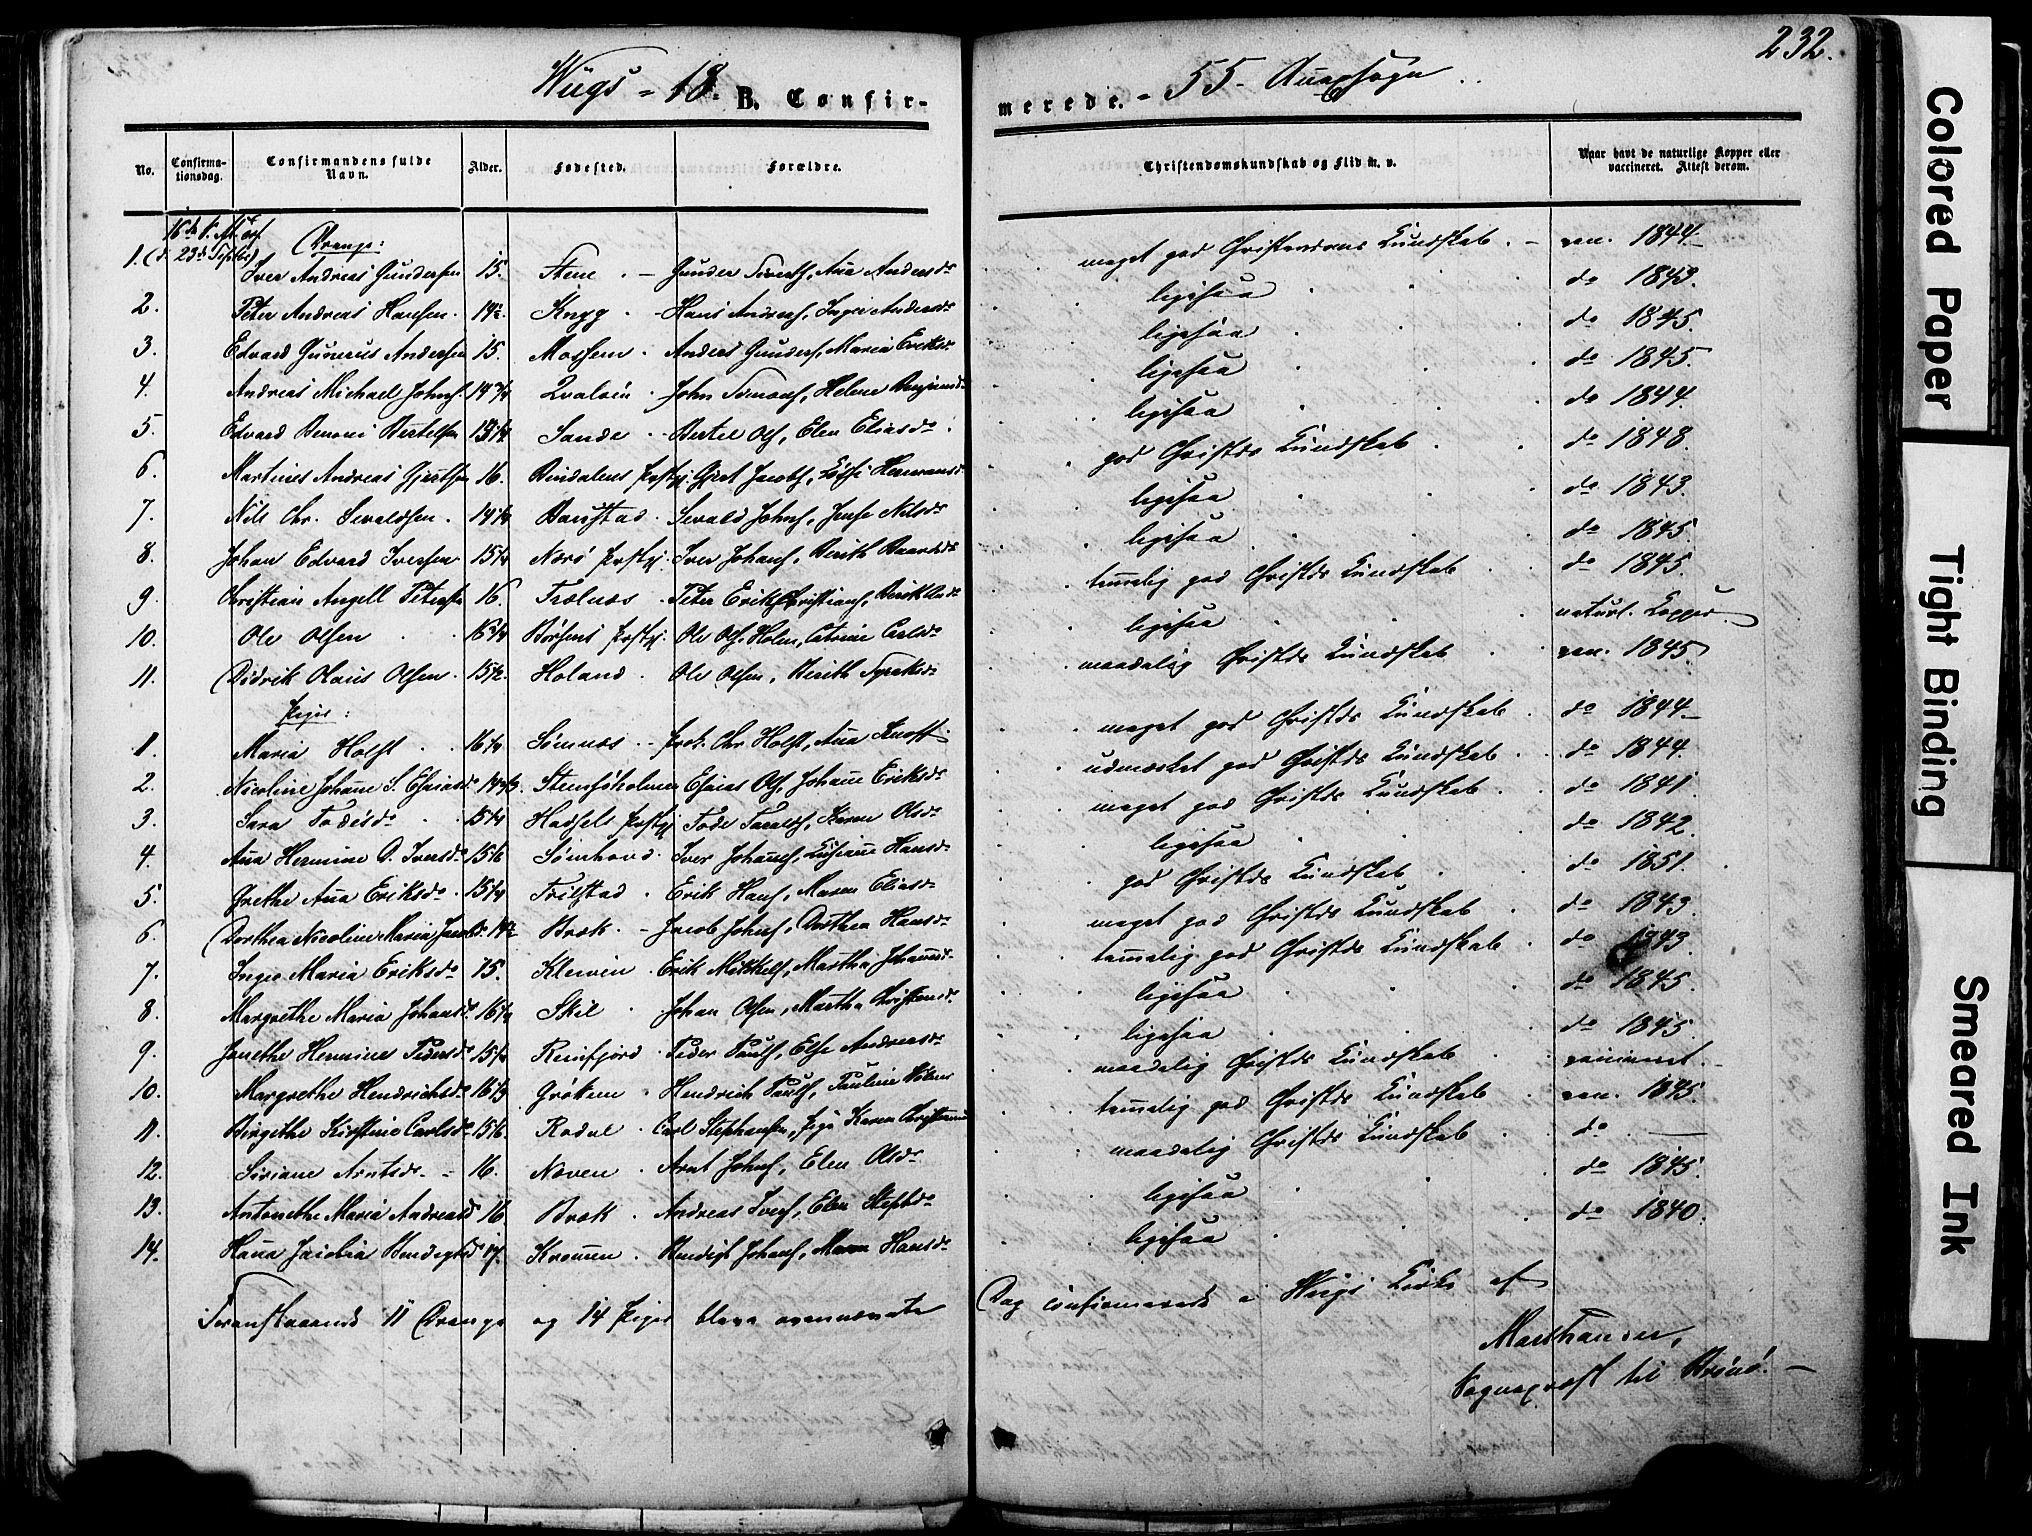 232.
Wügs - 18 B. Confir-
merede. - 55 - Annexsogn
No.
Confirma-
tionsdag.
Confirmandens fulde
Navn.
Alder.
Fødested.
Forældre.
Christendomskundskab og Flid m. v.
Naar havt de naturlige Kopper eller
vaccineret. Attest derom.
Drenge:
1. Iver Andreas Gundersen 15. Stene - Gunder Andersd. meget god Christendoms Kundskab. - vac. 1844
2. Peter Andreas Hansen. 14½ Knyg Hans Anders, Inger Andersdr ligesaa do 1843.
3. Edvard Gunerus Andersen 15. Mossem Anders Gunders, Maria Eriksdr ligesaa do 1845.
4. Andreas Michael Johns. 14 3/4 Qvaløen John Simons, Helene Benjamsd ligesaa do 1845
5. Edvard Benoni Bertelsen Sande Bertel Ols, Elen Eliasdr ligesaa do 1844.
6. Martines Andreas Gjertsen 16. Bindalens Prstgj. Gjert Jacobs, Hermansd god Christds Kundskab do 1848.
7. Nils Chr. Sivaldsen. 14¼ Baustad Sivald Johns, Nilsdr ligesaa do 1843.
8. Johan Edvard Iversen 15¼ Nærø Prstgj. Iver Johans, Berith ligesaa do 1845
9. Christian Angell Petersen 16. Trælnæs Peter Erik Christians, temelig god Christds Kundskab do 1845.
10. Ole Olsen Børsens Prstgj. Ole Ols Holm, Catrine Carlsdr ligesaa naturl. Kopper.
11. Didrik Olaus Olsen. 15½. Holand. Ole Olsen, Berith maadelig Christds Kundskab vac. 1845
Piger:
1. Maria Holst 16¼ Sømnæs Prok. Chr. Holst, Ana Knoff meget god Christds Kundskab do 1844
2. Nicoline Johane S. Esaiasd. Esaias Ols, Johane Eriksdr udmærket god Christds Kundskab do 1844.
3. Sara Todesdr 15¼ Hadsels Prstgj Tode Karen Olsdr meget god Christds Kundskab do 1841.
4. Ana Hermine O. Iversdr 15⅙ Sømhovd. Iver Johans, Hansdr ligesaa do 1842.
5. Grethe Ana Eriksdr 15¼ Trilstad Erik Hans, Maren Eliasdr god Christds Kundskab do 1851.
6. Dorthea Nicoline Maria Jacobsd. 14½ Bræk. - Jacob Johns, Dorthea Hansdr meget god Christds Kundskab do 1843.
7. Inger Maria Eriksdr 15. Kleivin Erik Mikkels, Martha Johansdr temelig god Christds Kundskab do 1843.
8. Margrethe Maria Johansd. 16¼ Skil Johan Olsen, Martha Christensdr ligesaa do 1845.
9. Janethe Hermine Pedersdr Reinfjord Peder Pauls, Else Andreasdr ligesaa do 1845
10. Margrethe Hendrichsdr 16⅓ Grøttem Hendrich Pauls, Pauline maadelig Christds Kundskab vaccineret
11. Birgethe Kirstine Carlsdr 15⅙. Rødal Carl Stephansen, Pige Karen temelig god Christds Kundskab vac. 1845.
12. Siriane Arntsdr 16. Næven Arnt Johns, Elen Olsdr maadelig Christds Kundskab do
13. Antonethe Maria Andreasd 16 Bræk Andreas Ivers, Elen Stephdr ligesaa do 1845
14. Hana Jacobia Bendigtsd 17. Kromen Bendigt Johans, Maren Hansdr ligesaa do 1840.
Foranstaaende 11 Drenge og 14 Piger bleve ovennævnte
Dag confirmerede i Wegs Kirke af
Sognepræst til Brønø. -
Colored Paper
Tight Binding
Smeared Ink